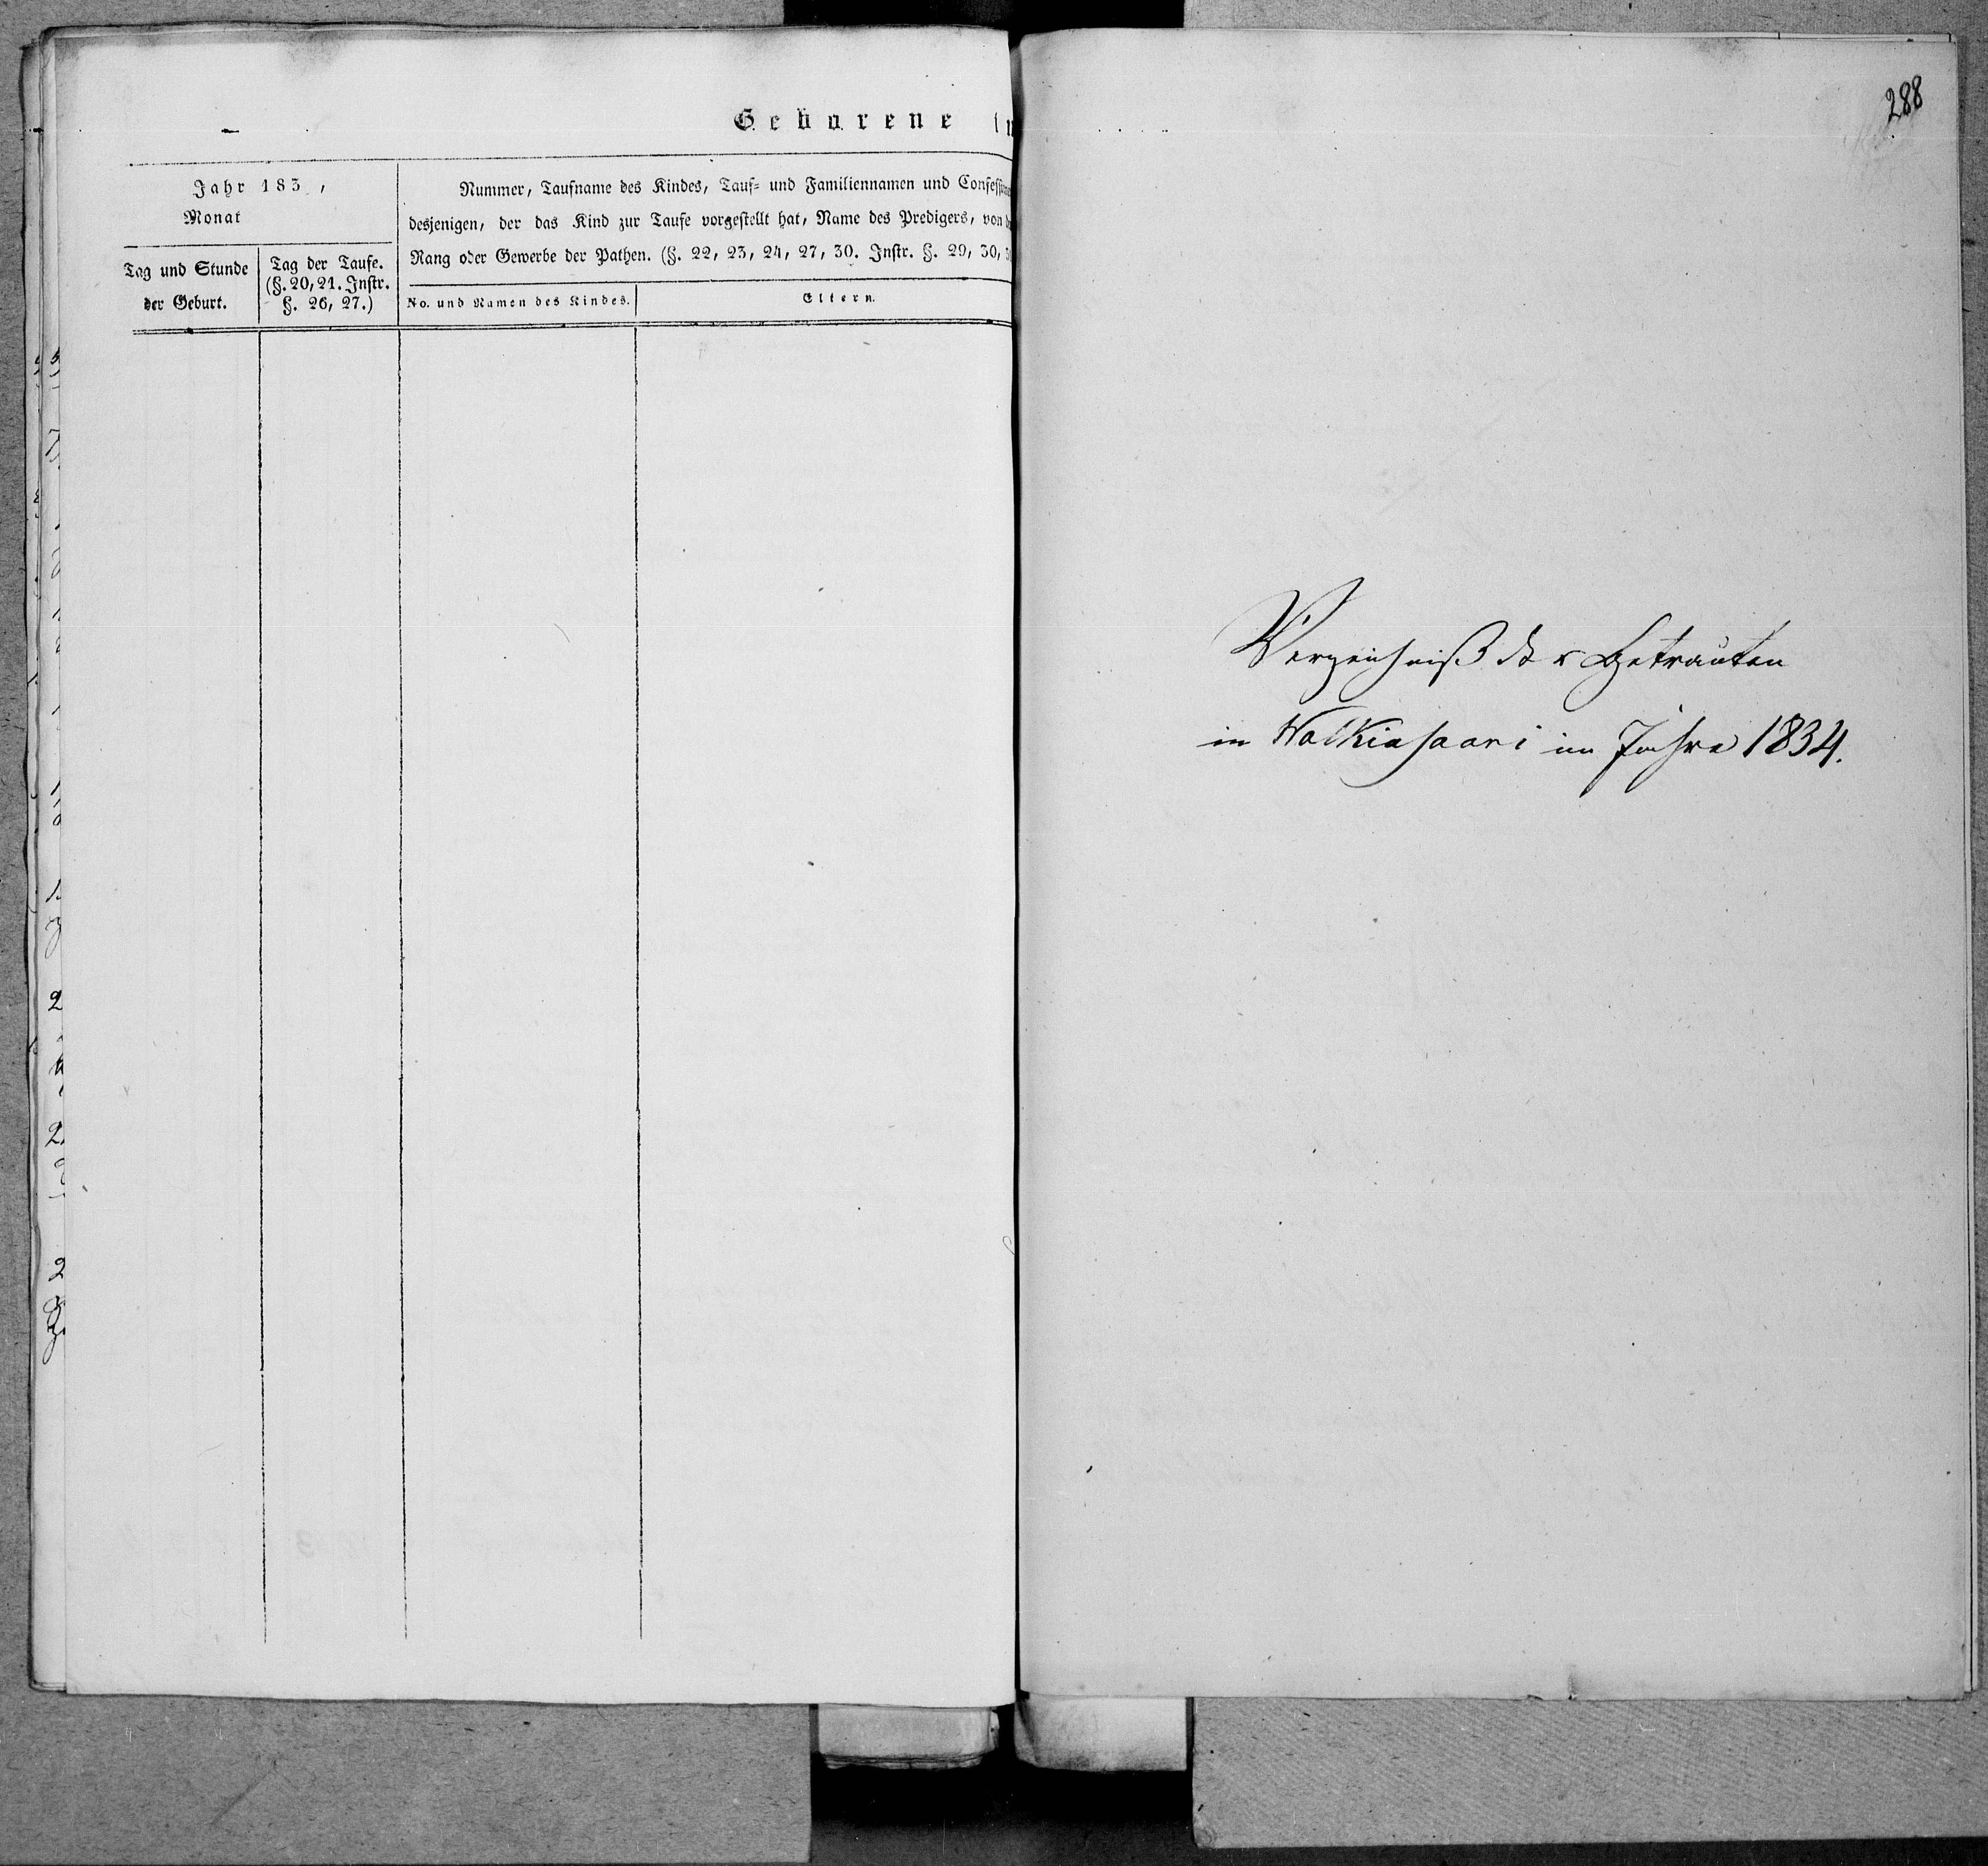 Geborene in
Jahr 183 ,
Monat
Nummer, Taufname des Kindes, Tauf- und Familiennamen und Confession
desjenigen, der das Kind zur Taufe vorgestellt hat, Name des Predigers, von
Rang oder Gewerbe der Pathen. (§. 22, 23, 24, 27, 30. Instr. §. 29, 30,
Tag und Stunde
der Geburt.
Tag der Taufe.
(§. 20, 21. Instr.
§. 26, 27.)
No. und Namen des Kindes.
Eltern.
288
Verzeichniß der Getrauten
in Walkiasaari im Jahre 1834.